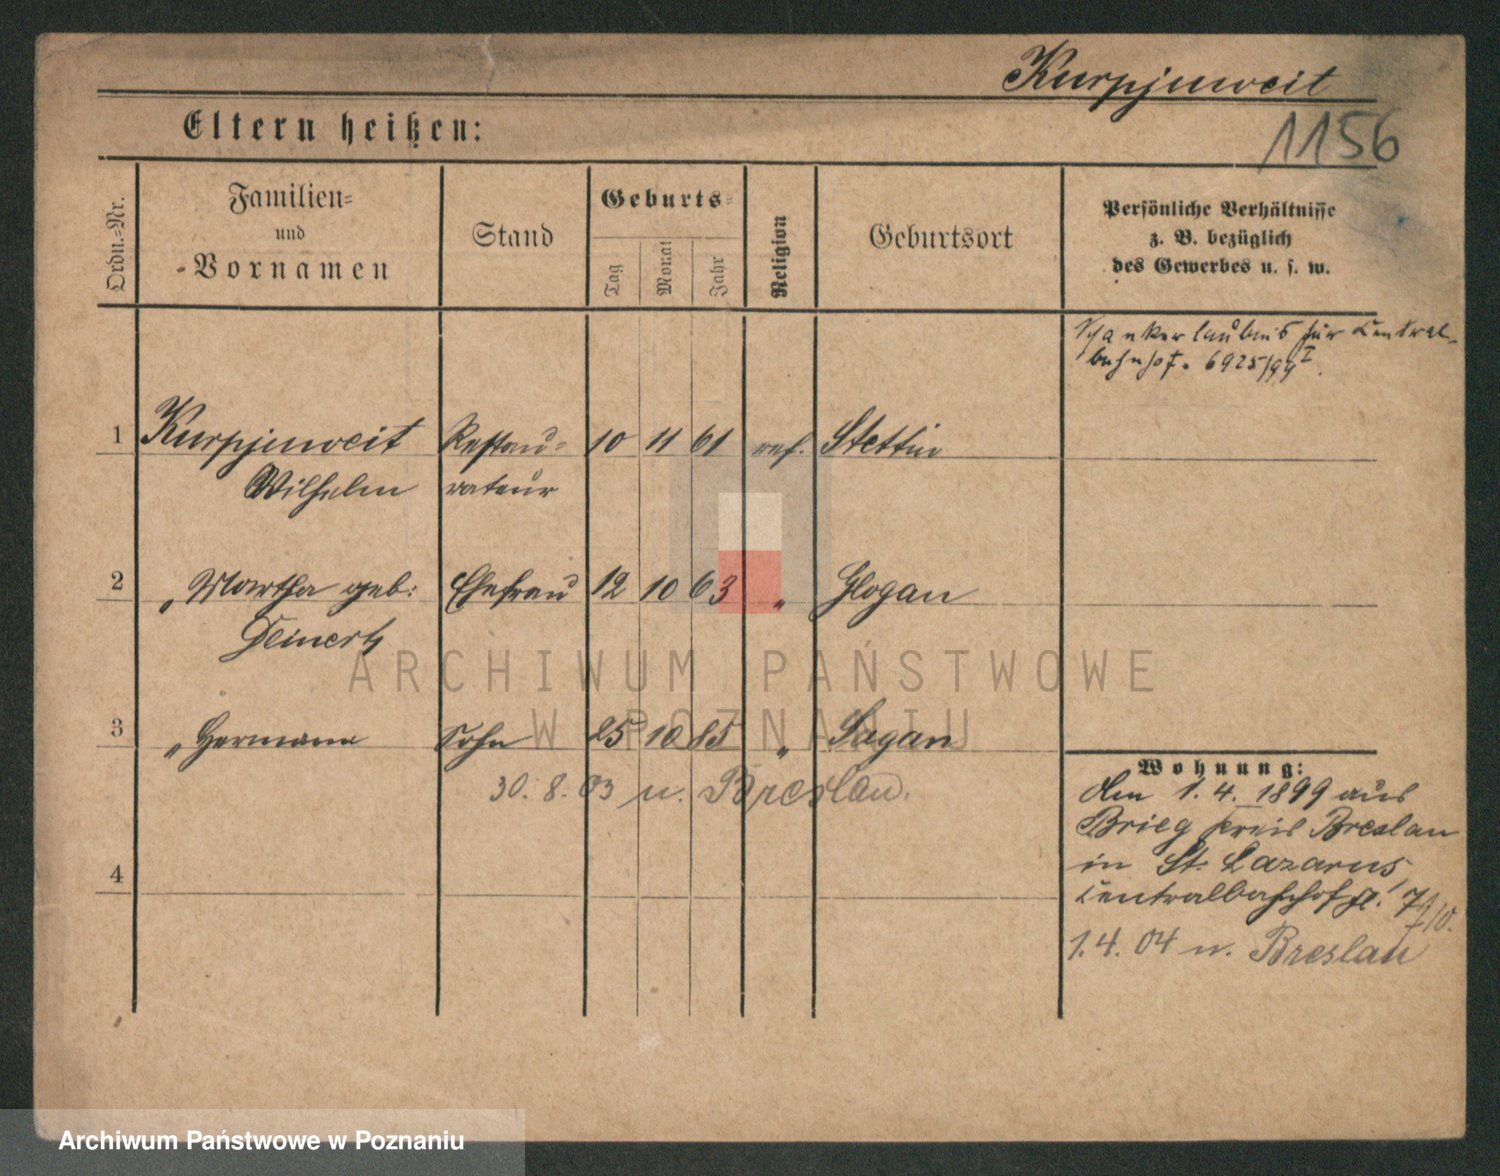 Kurpjuweit
1156
Eltern heißen:
Ordn.-Nr.
Familien-
und
Vornamen
Stand
Geburts-
Tag
Monat
Jahr
Religion
Geburtsort
Persönliche Verhältnisse
z. B. bezüglich
des Gewerbes u. s. w.
Schankerlaubnis für Central-
bahnhof. 6925/99 I.
1 Kurpjuweit Restau- 10 11 61 ref. Stettin
Wilhelm rateur
2 " Martha geb: Ehefrau 12 10 63 " Glogau
Deinert
3 " Hermann Sohn 25 10 85 " Sagan
30. 8. 03 n. Breslau.
4
Wohnung:
Am 1. 4. 1899 aus
Brieg Kreis Breslau
in St. Lazarus
Centralbahnhof
1. 4. 04 n. Breslau
ARCHIWUM PAŃSTWOWE
W POZNANIU
Archiwum Państwowe w Poznaniu